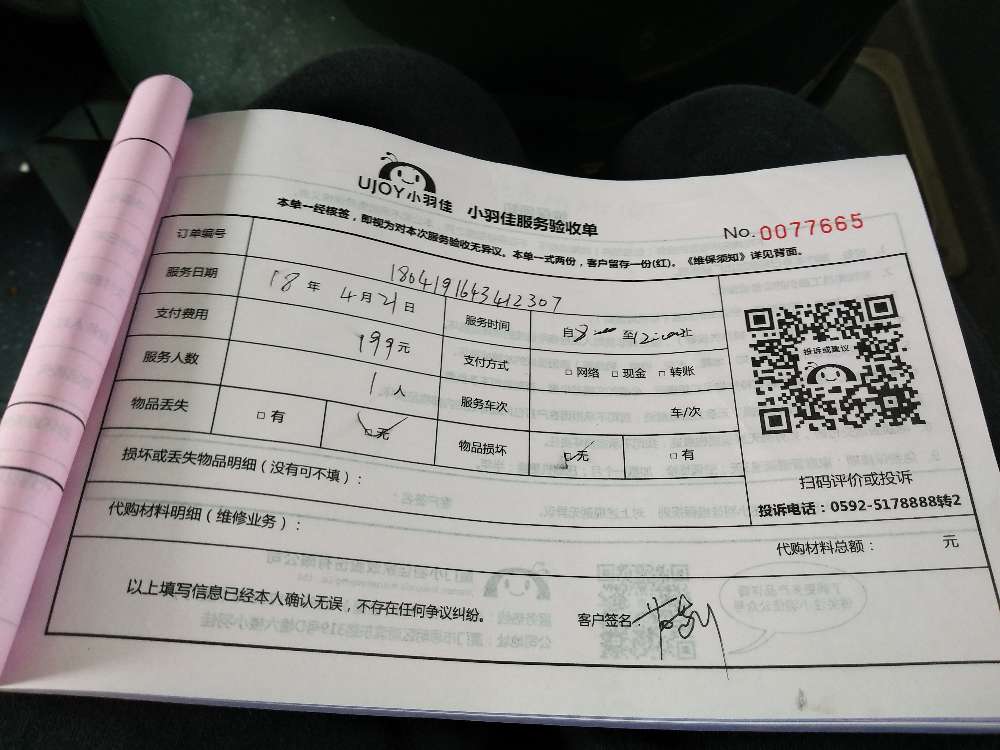 UJOY小羽佳 小羽佳服务验收单
No.0077665
本单一经核签，即视为对本次服务验收无异议。本单一式两份，客户留存一份(红)。《维保须知》详见背面。
订单编号 180419164341 2307
服务日期 18年4月21日 服务时间 自8:00至12:00止
支付费用 199元 支付方式 □网络 □现金 □转账
服务人数 1人 服务车次 车/次
物品丢失 □有 □无 物品损坏 □无 □有
投诉或建议
扫码评价或投诉
投诉电话：0592-5178888转2
损坏或丢失物品明细（没有可不填）：
代购材料明细（维修业务）：
代购材料总额： 元
以上填写信息已经本人确认无误，不存在任何争议纠纷。
客户签名：